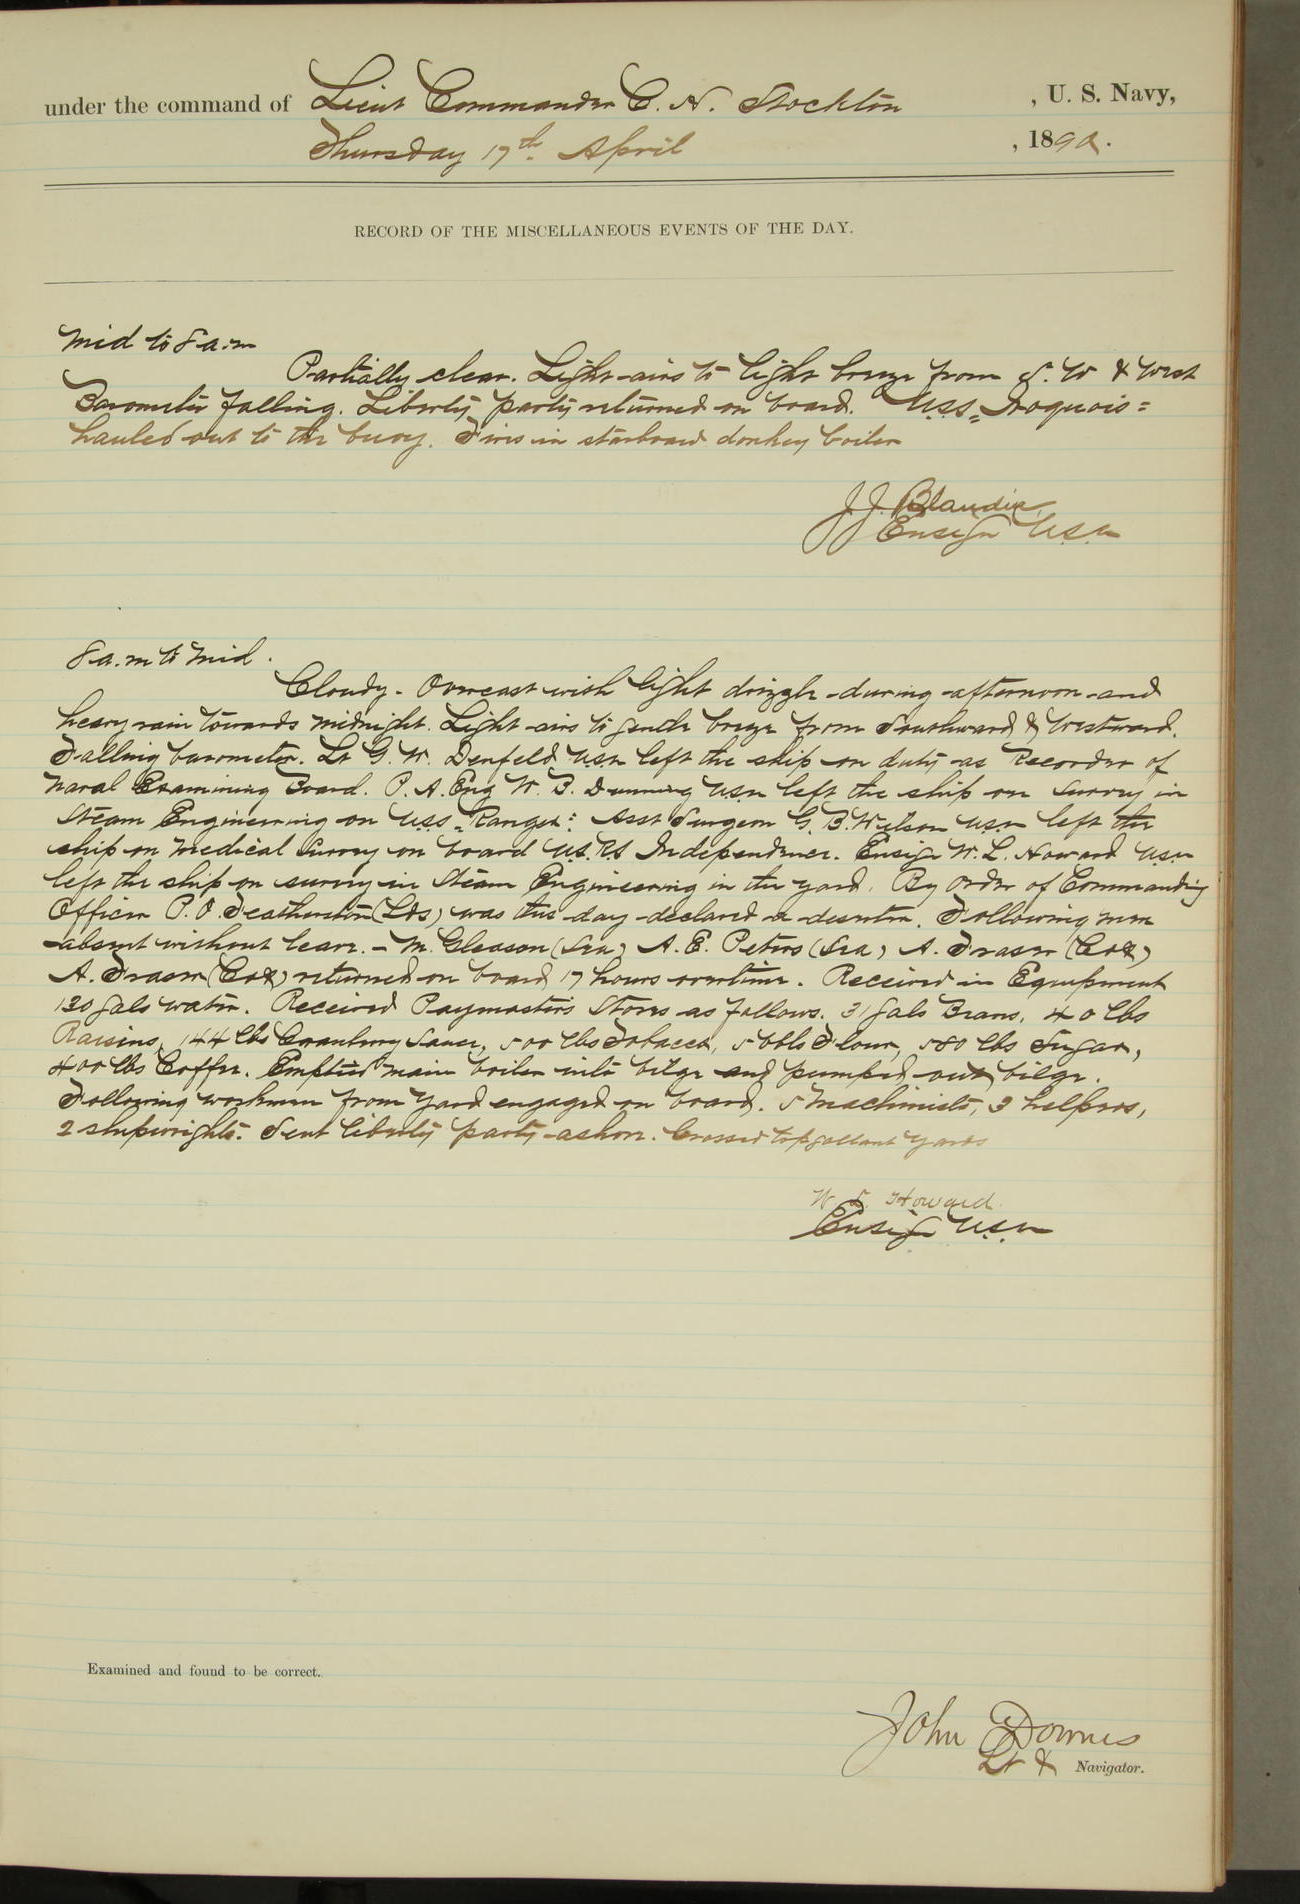 under the command of Lieut Commander C. H. Stockton, U. S. Navy,
Thursday 17th April, 1890.
RECORD OF THE MISCELLANEOUS EVENTS OF THE DAY.
Mid to 8 a.m
Partially clear. Light airs to light breeze from S. W & West
Barometer falling. Liberty party returned on board. U.S.S. "Iroquois"
hauled out to the buoy. Fires in starboard donkey boiler
J. J. Blandin
Ensign U.S.N
8 a.m to Mid.
Cloudy - Overcast with light drizzle during afternoon and
heavy rain towards midnight. Light airs to gentle breeze from Southward & Westward.
Falling barometer. Lt G. W. Denfeld U.S.N left the ship on duty as Recorder of
Naval Examining Board. P. A. Eng W. B. Dunning U.S.N left the ship on survey in
Steam Engineering on U.S.S. "Ranger". Asst Surgeon G. B. Wilson U.S.N left the
ship on medical survey on board U.S.R.S Independence. Ensign W. L. Howard U.S.N
left the ship on survey in Steam Engineering in the yard. By order of Commanding
Officer P. O. (Lds) was this day declared a deserter. Following men
absent without leave. - M. Gleason (Sea) A. E. Peters (Sea) A. Fraser (Cox)
A. Fraser (Cox) returned on board 17 hours overtime. Received in Equipment
130 gals water. Received Paymasters Stores as follows. 31 gals Beans, 40 lbs
Raisins, 144 lbs Cranberry Sauce, 500 lbs Tobacco, 5 bbls Flour, 580 lbs Sugar,
400 lbs Coffee. Emptied main boiler into bilge and pumped out bilge.
Following workmen from yard engaged on board. 5 Machinists, 3 helpers,
2 shipwrights. Sent liberty party ashore. Crossed topgallant yards
W. L. Howard
Ensign U.S.N
Examined and found to be correct.
John Downes
Lt & Navigator.